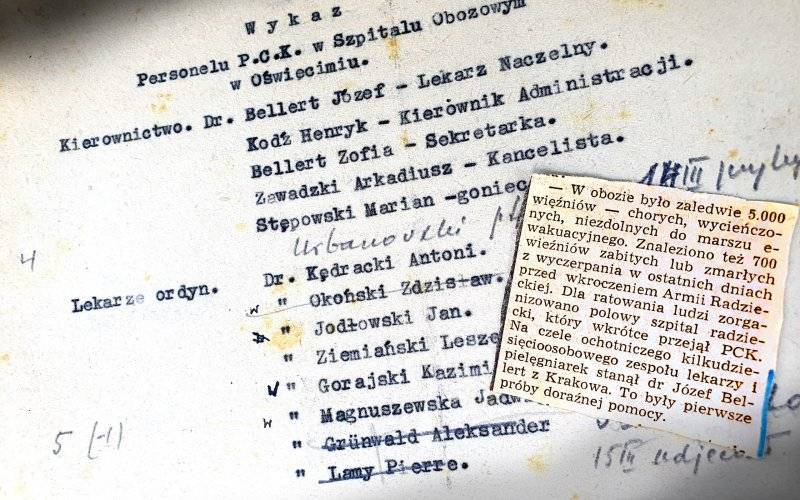 Wykaz
Personelu P.C.K. w Szpitalu Obozowym
w Oświecimiu.
Kierownictwo. Dr. Bellert Józef - Lekarz Naczelny.
Kodź Henryk - Kierownik Administracji.
Bellert Zofia - Sekretarka.
Zawadzki Arkadiusz - Kancelista.
Stępowski Marian -goniec
14 III
Urbanowski
4
Lekarze ordyn. Dr. Kędracki Antoni.
" Okoński Zdzisław.
" Jodłowski Jan.
" Ziemiański Lesze
" Gorajski Kazimi
" Magnuszewska Jadw
" Grünwald Aleksander
" Lamy Pierre.
5 (-1)
15 III
— W obozie było zaledwie 5.000
więźniów — chorych, wycieńczo-
nych, niezdolnych do marszu e-
wakuacyjnego. Znaleziono też 700
wieźniów zabitych lub zmarłych
z wyczerpania w ostatnich dniach
przed wkroczeniem Armii Radzie-
ckiej. Dla ratowania ludzi zorga-
nizowano polowy szpital radzie-
cki, który wkrótce przejął PCK.
Na czele ochotniczego kilkudzie-
sięcioosobowego zespołu lekarzy i
pielęgniarek stanął dr Józef Bel-
lert z Krakowa. To były pierwsze
próby doraźnej pomocy.